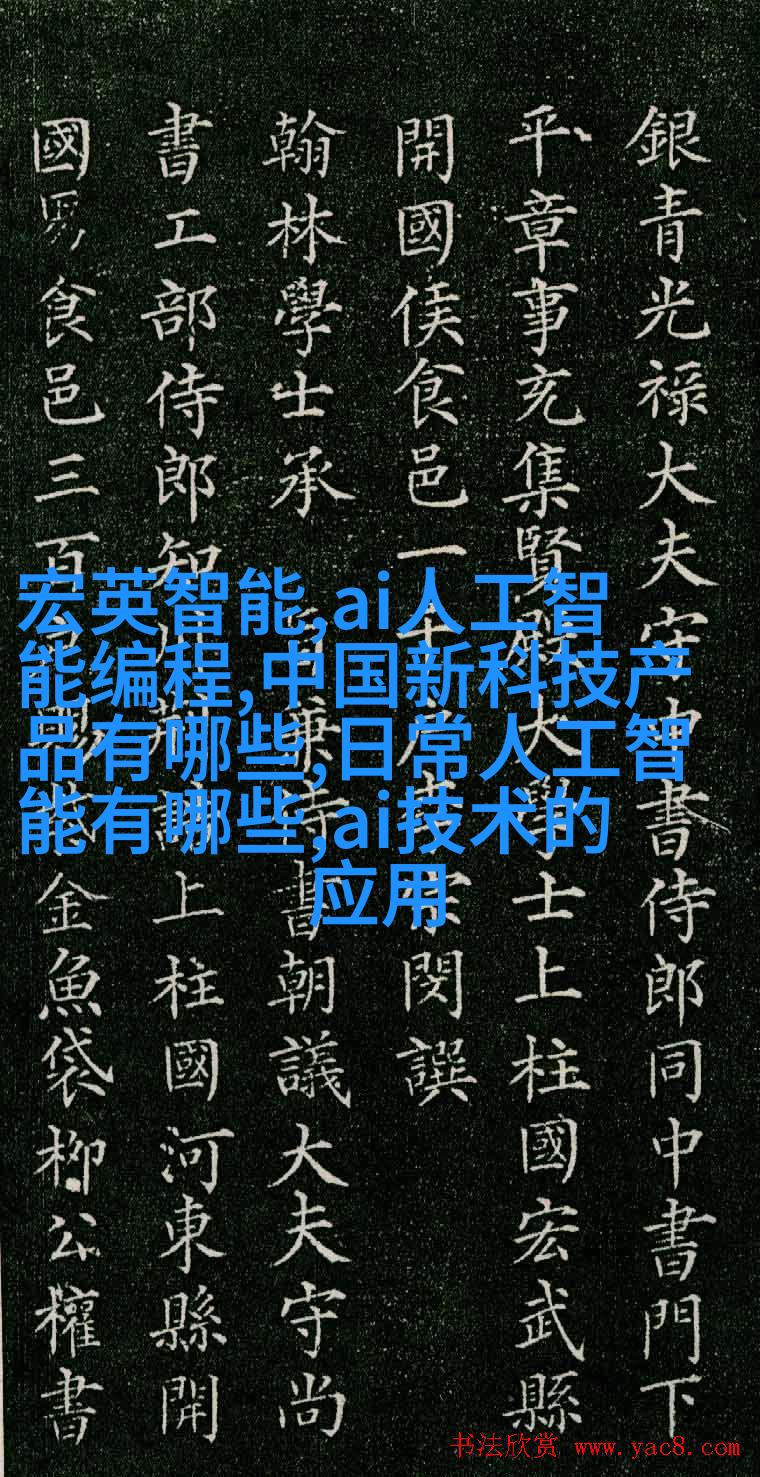 銀青光祿大夫守中書侍郎同中書門下
平章事充集賢殿大學士上柱國宏武縣
開國侯食邑一千宗閔撰
翰林學士承旨兼侍書朝議大夫守尚
書工部侍郎知制誥上柱國河東縣開
國男食邑三百賜金魚袋柳公權書
宏英智能,ai人工智
能编程,中国新科技产
品有哪些,日常人工智
能有哪些,ai技术的
应用
书法欣赏 www.yac8.com